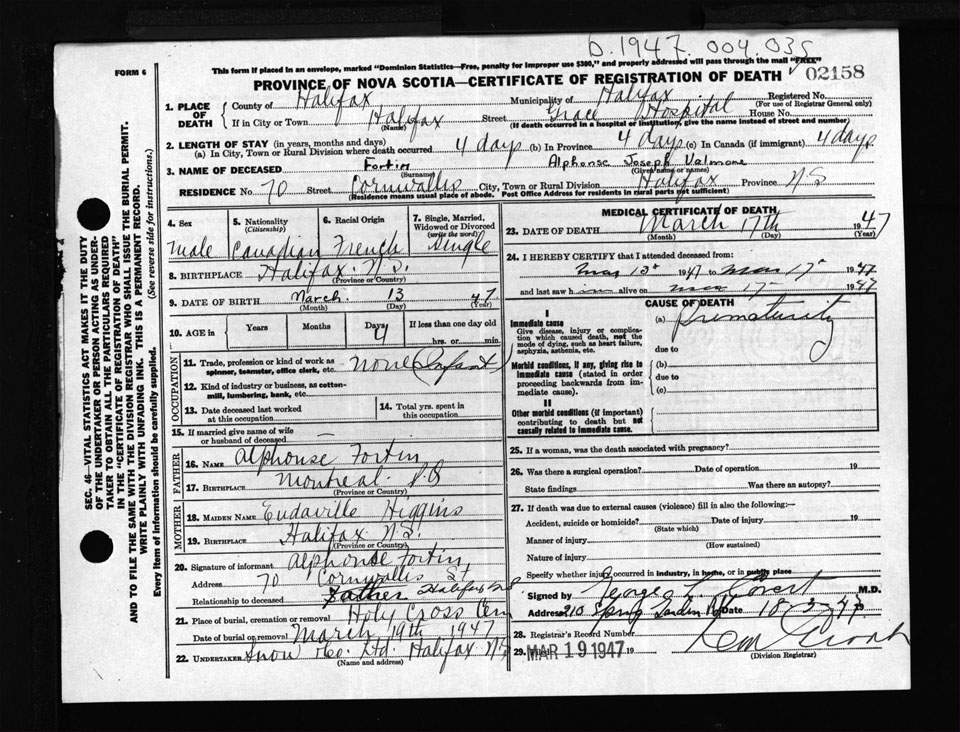 D.1947.004.035
FORM 6
This form if placed in an envelope, marked "Dominion Statistics—Free, penalty for improper use $300," and properly addressed will pass through the mail "FREE"
PROVINCE OF NOVA SCOTIA—CERTIFICATE OF REGISTRATION OF DEATH
02158
1. PLACE OF DEATH
County of Halifax Municipality of Halifax Registered No.
(For use of Registrar General only)
If in City or Town Halifax Street Grace Hospital House No.
(Name) (If death occurred in a hospital or institution, give the name instead of street and number)
2. LENGTH OF STAY (in years, months and days)
(a) In City, Town or Rural Division where death occurred 4 days (b) In Province 4 days (c) In Canada (if immigrant) 4 days
3. NAME OF DECEASED Fortin Alphonse Joseph Valmore
(Surname) (Given name or names)
RESIDENCE No. 70 Street Cornwallis City, Town or Rural Division Halifax Province N S
(Residence means usual place of abode. Post Office Address for residents in rural parts not sufficient)
4. Sex
Male
5. Nationality (Citizenship)
Canadian
6. Racial Origin
French
7. Single, Married, Widowed or Divorced (write the word)
Single
8. BIRTHPLACE Halifax. N.S.
(Province or Country)
9. DATE OF BIRTH March. 13 47
(Month) (Day) (Year)
10. AGE in Years Months Days If less than one day old
4 hrs. or min.
OCCUPATION
11. Trade, profession or kind of work as spinner, teamster, office clerk, etc. None (Infant)
12. Kind of industry or business, as cotton-mill, lumbering, bank, etc.
13. Date deceased last worked at this occupation
14. Total yrs. spent in this occupation
15. If married give name of wife or husband of deceased —
FATHER
16. NAME Alphonse Fortin
17. BIRTHPLACE Montreal P.Q
(Province or Country)
MOTHER
18. MAIDEN NAME Eudaville Higgins
19. BIRTHPLACE Halifax N.S.
(Province or Country)
20. Signature of informant Alphonse Fortin
Address 70 Cornwallis St
Halifax NS
Relationship to deceased Father
21. Place of burial, cremation or removal Holy Cross Cem
Date of burial or removal March 19th 1947
22. UNDERTAKER Snow & Co. Ltd. Halifax NS
(Name and address)
MEDICAL CERTIFICATE OF DEATH
23. DATE OF DEATH March 17th 1947
(Month) (Day) (Year)
24. I HEREBY CERTIFY that I attended deceased from:
Mar 13th 1947 to Mar 17th 1947
and last saw him alive on Mar 17 1947
CAUSE OF DEATH
I
Immediate cause
Give disease, injury or complication which caused death, not the mode of dying, such as heart failure, asphyxia, asthenia, etc.
(a) Prematurity
due to
Morbid conditions, if any, giving rise to immediate cause (stated in order proceeding backwards from immediate cause).
(b)
due to
(c)
II
Other morbid conditions (if important) contributing to death but not causally related to immediate cause.
25. If a woman, was the death associated with pregnancy?
26. Was there a surgical operation? Date of operation 19
State findings Was there an autopsy?
27. If death was due to external causes (violence) fill in also the following:—
Accident, suicide or homicide? Date of injury 19
(State which)
Manner of injury
(How sustained)
Nature of injury
Specify whether injury occurred in Industry, in home, or in public place
Signed by M.D.
Address 210 Spring Garden Rd Date 18-3-47 19
28. Registrar's Record Number
29. MAR 19 1947 19
(Division Registrar)
SEC. 46—VITAL STATISTICS ACT MAKES IT THE DUTY
OF THE UNDERTAKER OR PERSON ACTING AS UNDER-
TAKER TO OBTAIN ALL THE PARTICULARS REQUIRED
IN THE "CERTIFICATE OF REGISTRATION OF DEATH"
AND TO FILE THE SAME WITH THE DIVISION REGISTRAR WHO SHALL ISSUE THE BURIAL PERMIT.
WRITE PLAINLY WITH UNFADING INK. THIS IS A PERMANENT RECORD.
Every Item of Information should be carefully supplied. (See reverse side for instructions.)